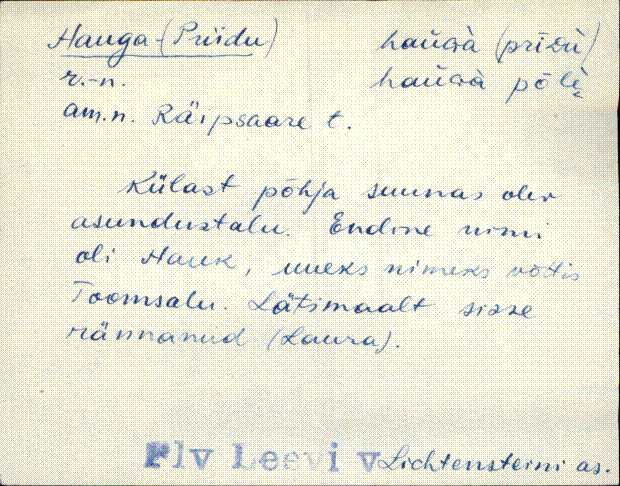 Hauga-(Priidu) hau̬GÀ (prīDù)
r.-n. hau̬GÀ pȯlè
am.n. Räipsaare t.
Külast põhja suunas olev
asundustalu. Endine nimi
oli Hauk, uueks nimeks võttis
Toomsalu. Lätimaalt sisse
rännanud (Laura).
Plv Leevi v Lichtensteini as.